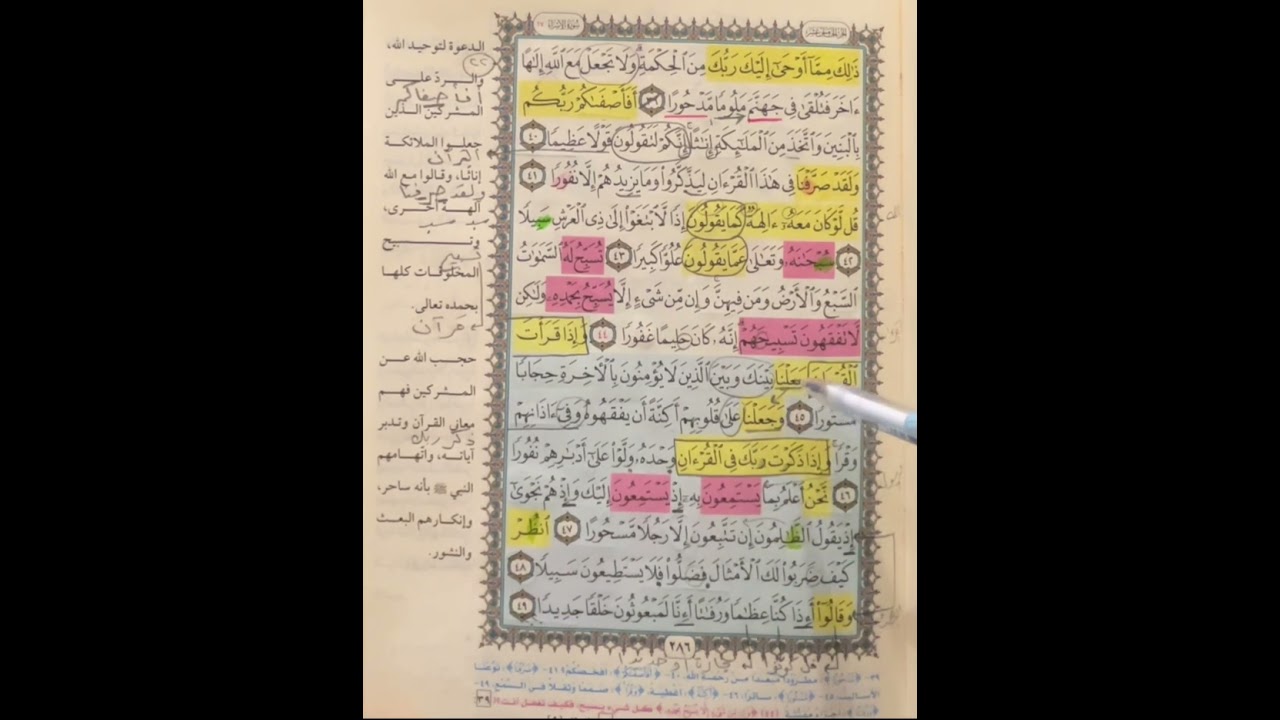 سورة الإسراء ١٧
ذَٰلِكَ مِمَّآ أَوْحَىٰٓ إِلَيْكَ رَبُّكَ مِنَ ٱلْحِكْمَةِ وَلَا تَجْعَلْ مَعَ ٱللَّهِ إِلَٰهًا
ءَاخَرَ فَتُلْقَىٰ فِى جَهَنَّمَ مَلُومًا مَّدْحُورًا ٣٩ أَفَأَصْفَىٰكُمْ رَبُّكُم
بِٱلْبَنِينَ وَٱتَّخَذَ مِنَ ٱلْمَلَٰٓئِكَةِ إِنَٰثًا إِنَّكُمْ لَتَقُولُونَ قَوْلًا عَظِيمًا ٤٠
وَلَقَدْ صَرَّفْنَا فِى هَٰذَا ٱلْقُرْءَانِ لِيَذَّكَّرُوا۟ وَمَا يَزِيدُهُمْ إِلَّا نُفُورًا ٤١
قُل لَّوْ كَانَ مَعَهُۥٓ ءَالِهَةٌ كَمَا يَقُولُونَ إِذًا لَّٱبْتَغَوْا۟ إِلَىٰ ذِى ٱلْعَرْشِ سَبِيلًا
٤٢ سُبْحَٰنَهُۥ وَتَعَٰلَىٰ عَمَّا يَقُولُونَ عُلُوًّا كَبِيرًا ٤٣ تُسَبِّحُ لَهُ ٱلسَّمَٰوَٰتُ
ٱلسَّبْعُ وَٱلْأَرْضُ وَمَن فِيهِنَّ وَإِن مِّن شَىْءٍ إِلَّا يُسَبِّحُ بِحَمْدِهِۦ وَلَٰكِن
لَّا تَفْقَهُونَ تَسْبِيحَهُمْ إِنَّهُۥ كَانَ حَلِيمًا غَفُورًا ٤٤ وَإِذَا قَرَأْتَ
ٱلْقُرْءَانَ جَعَلْنَا بَيْنَكَ وَبَيْنَ ٱلَّذِينَ لَا يُؤْمِنُونَ بِٱلْءَاخِرَةِ حِجَابًا
مَّسْتُورًا ٤٥ وَجَعَلْنَا عَلَىٰ قُلُوبِهِمْ أَكِنَّةً أَن يَفْقَهُوهُ وَفِىٓ ءَاذَانِهِمْ
وَقْرًا وَإِذَا ذَكَرْتَ رَبَّكَ فِى ٱلْقُرْءَانِ وَحْدَهُۥ وَلَّوْا۟ عَلَىٰٓ أَدْبَٰرِهِمْ نُفُورًا
٤٦ نَّحْنُ أَعْلَمُ بِمَا يَسْتَمِعُونَ بِهِۦٓ إِذْ يَسْتَمِعُونَ إِلَيْكَ وَإِذْ هُمْ نَجْوَىٰٓ
إِذْ يَقُولُ ٱلظَّٰلِمُونَ إِن تَتَّبِعُونَ إِلَّا رَجُلًا مَّسْحُورًا ٤٧ ٱنظُرْ
كَيْفَ ضَرَبُوا۟ لَكَ ٱلْأَمْثَالَ فَضَلُّوا۟ فَلَا يَسْتَطِيعُونَ سَبِيلًا ٤٨
وَقَالُوٓا۟ أَءِذَا كُنَّا عِظَٰمًا وَرُفَٰتًا أَءِنَّا لَمَبْعُوثُونَ خَلْقًا جَدِيدًا ٤٩
٢٨٦
الدعوة لتوحيد الله،
والرد على
المشركين الذين
جعلوا الملائكة
إناثا، وقالوا مع الله
آلهة أخرى،
وتسبيح
المخلوقات كلها
بحمده تعالى.
حجب الله عن
المشركين فهم
معاني القرآن وتدبر
آياته، واتهامهم
النبي ﷺ بأنه ساحر،
وإنكارهم البعث
والنشور.
القرآن
ولقد صرفنا
قرآن
ذكر ربك